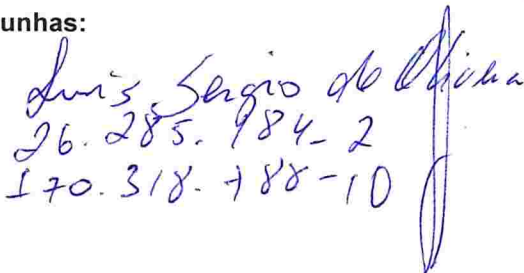 unhas:
Luis Sergio de Oliveira
26.285.984-2
170.318.788-10